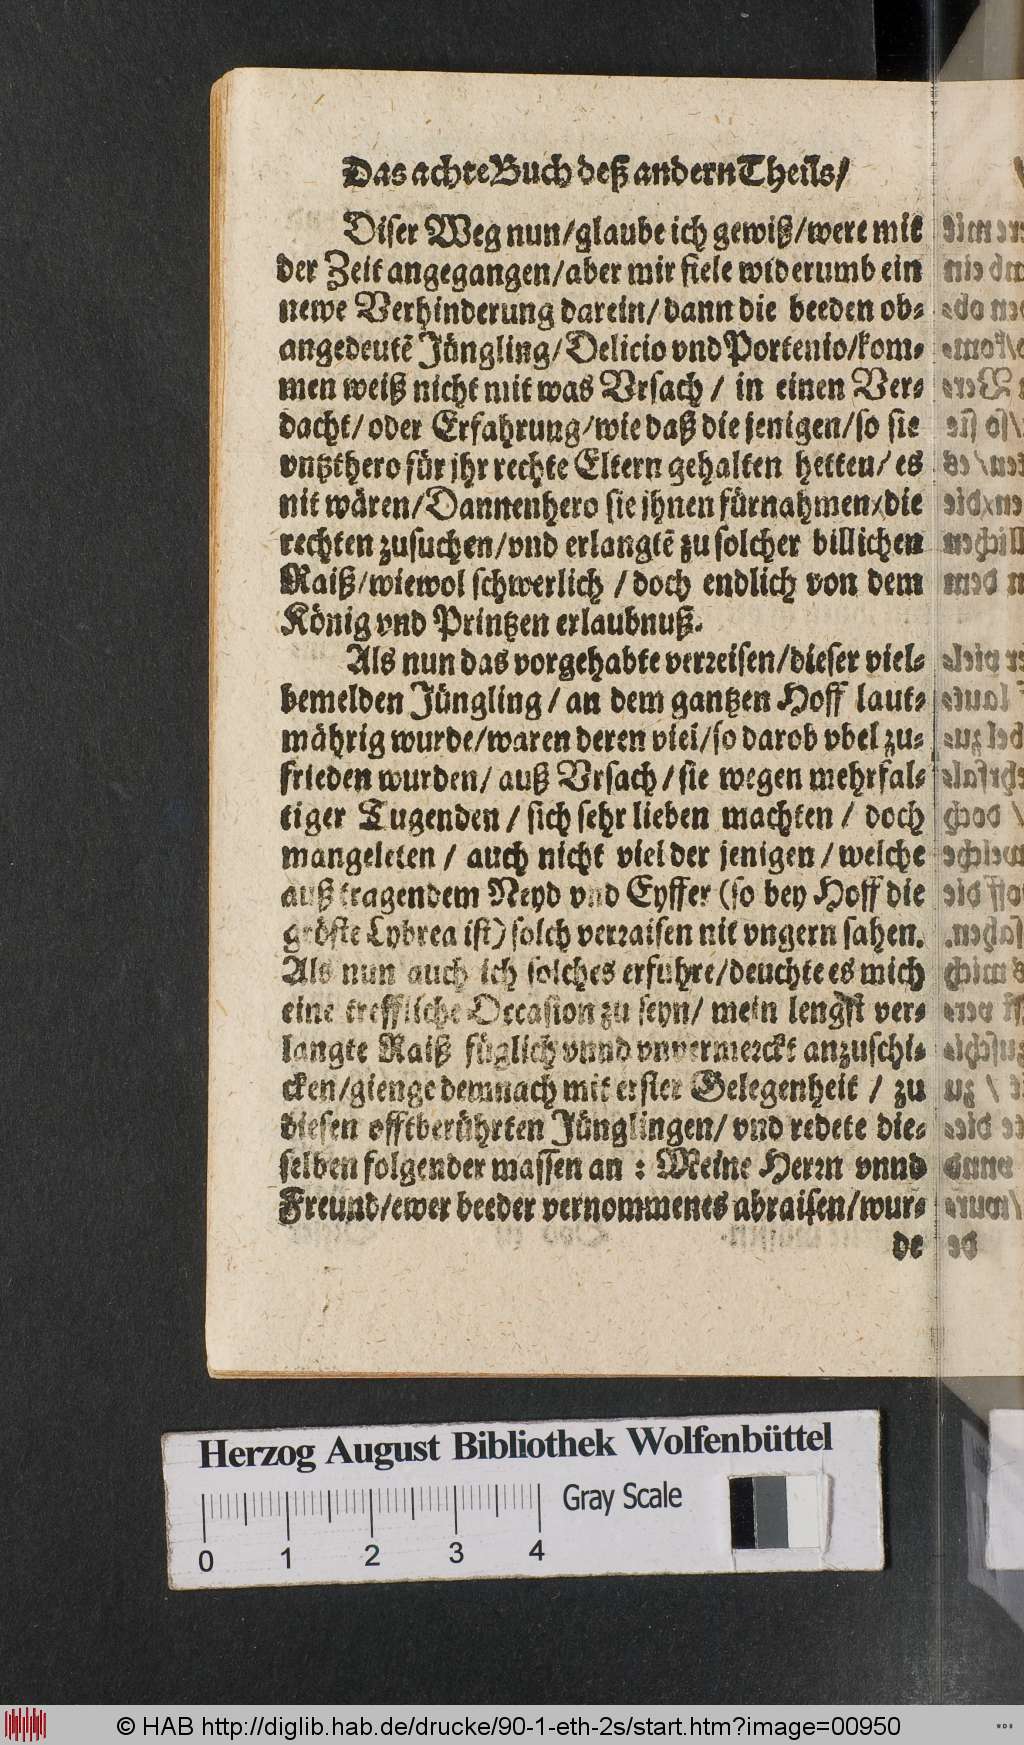 Das achte Buch deß andern Theils/
Diser Weg nun/glaube ich gewiß/were mit
der Zeit angegangen/aber mir fiele widerumb ein
newe Verhinderung darein/dann die beeden ob-
angedeutē Jüngling/Delicio vnd Portenio/kom-
men weiß nicht mit was Vrsach/ in einen Ver-
dacht/oder Erfahrung/wie daß die jenigen/so sie
vntzthero für jhr rechte Eltern gehalten hetten/es
nit wären/Dannenhero sie jhnen fürnahmen/die
rechten zusuchen/vnd erlangtē zu solcher billichen
Raiß/wiewol schwerlich/doch endlich von dem
König vnd Printzen erlaubnuß.
Als nun das vorgehabte verreisen/dieser viel-
bemelden Jüngling/an dem gantzen Hoff laut-
mährig wurde/waren deren viel/so darob vbel zu-
frieden wurden/auß Vrsach/sie wegen mehrfal-
tiger Tugenden/sich sehr lieben machten/doch
mangeleten/auch nicht viel der jenigen/welche
auß tragendem Neyd vnd Eyffer (so bey Hoff die
gröste Lybrea ist) solch verraisen nit vngern sahen.
Als nun auch ich solches erfuhre/deuchte es mich
eine treffliche Occasion zu seyn/mein lengst ver-
langte Raiß füglich vnnd vnvermerckt anzuschi-
cken/gienge demnach mit erster Gelegenheit/zu
diesen offtberührten Jünglingen/vnd redete die-
selben folgender massen an: Meine Herrn vnnd
Freund/ewer beeder vernommenes abraisen/wur-
de
Herzog August Bibliothek Wolfenbüttel
Gray Scale
0 1 2 3 4
© HAB http://diglib.hab.de/drucke/90-1-eth-2s/start.htm?image=00950